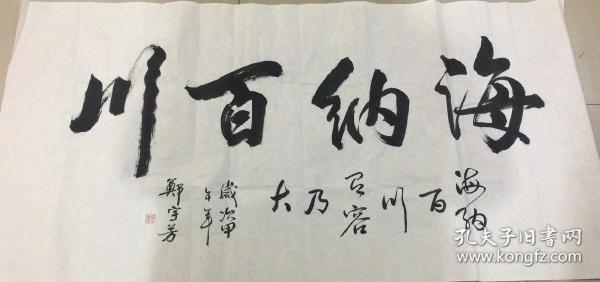 海納百川
海納
百
川
有容
乃
大
歲次甲
午年
鄭宇芳
孔夫子旧书网
www.kongfz.com